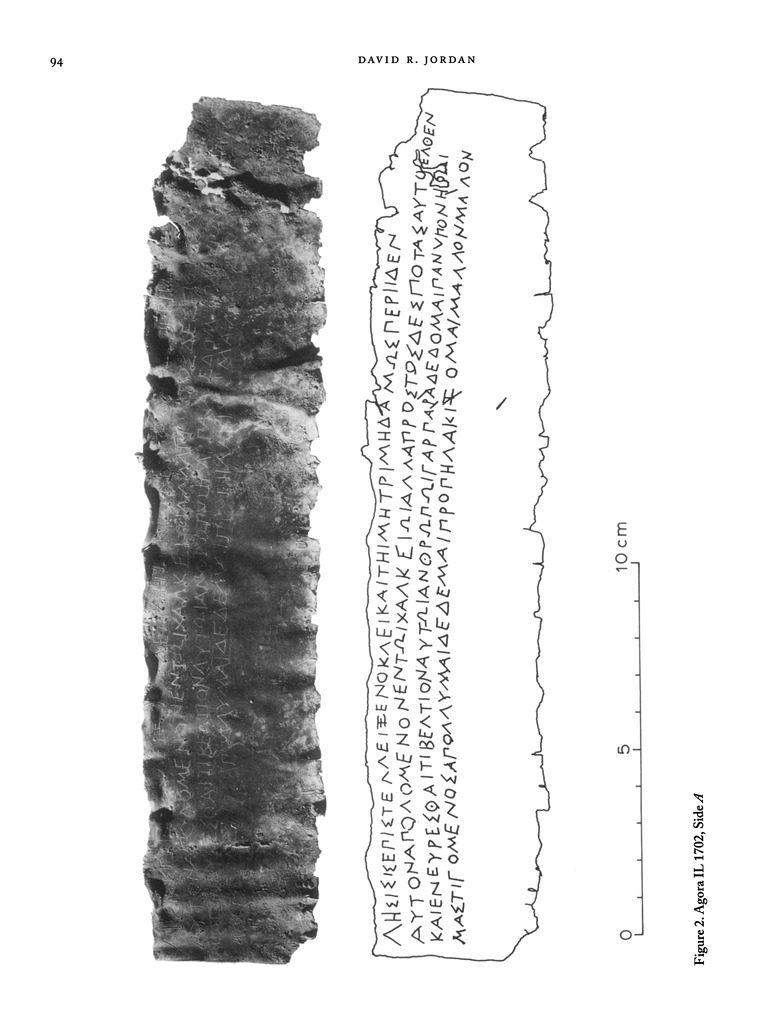 94
DAVID R. JORDAN
ΛΗΣΙΣΙΣΕΠΙΣΤΕΛΛΕΙΞΕΝΟΚΛΕΙΚΑΙΤΗΙΜΗΤΡΙΜΗΔΑΜΩΣΠΕΡΙΙΔΕΝ
ΑΥΤΟΝΑΠΟΛΟΜΕΝΟΝΕΝΤΩΙΧΑΛΚΕΙΩΙΑΛΛΑΠΡΟΣΤΟΣΔΕΣΠΟΤΑΣΑΥΤΟΕΛΘΕΝ
ΚΑΙΕΝΕΥΡΕΣΘΑΙΤΙΒΕΛΤΙΟΝΑΥΤΩΙΑΝΘΡΩΠΩΙΓΑΡΠΑΡΑΔΕΔΟΜΑΙΠΑΝΥΠΟΝΗΡΩΙ
ΜΑΣΤΙΓΟΜΕΝΟΣΑΠΟΛΛΥΜΑΙΔΕΔΕΜΑΙΠΡΟΠΗΛΑΚΙΖΟΜΑΙΜΑΛΛΟΝΜΑ ΛΟΝ
0 5 10 cm
Figure 2. Agora IL 1702, Side A